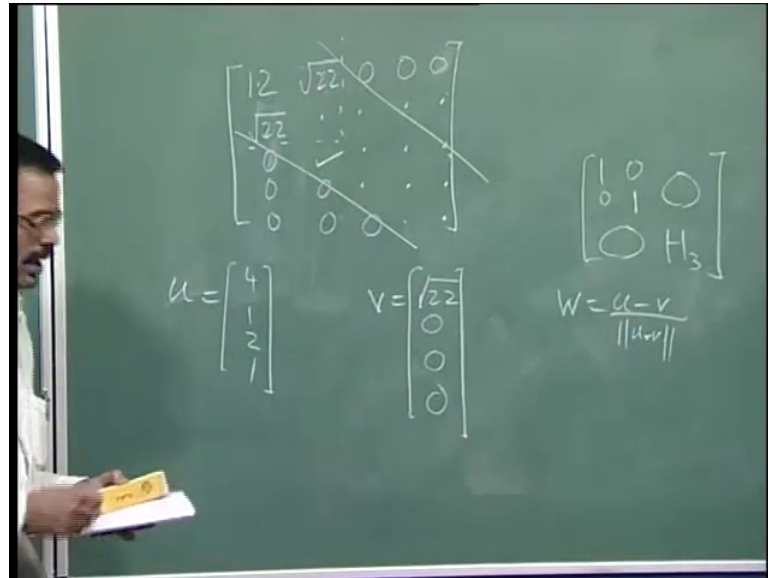 12 √22 0 0 0
√22 . . . .
0 ✓ . . .
0 0 . . .
0 0 0 . .
1 0
0 1 O
O H₃
u = [4
1
2
1]
v = [√22
0
0
0]
W = u-v
||u-v||